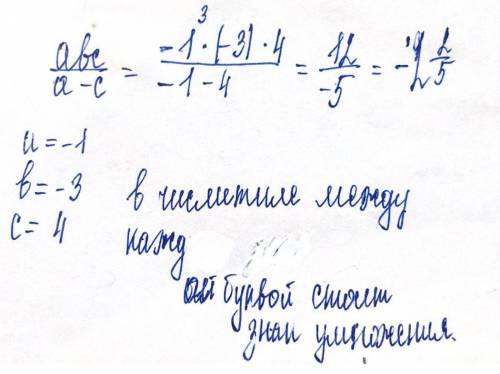 abc/a-c = -1·(-3)·4/-1-4 = 12/-5 = -2 2/5
3
a=-1
b=-3 в числитиле между
c=4 кажд
ой буквой стоит
знак умножения.